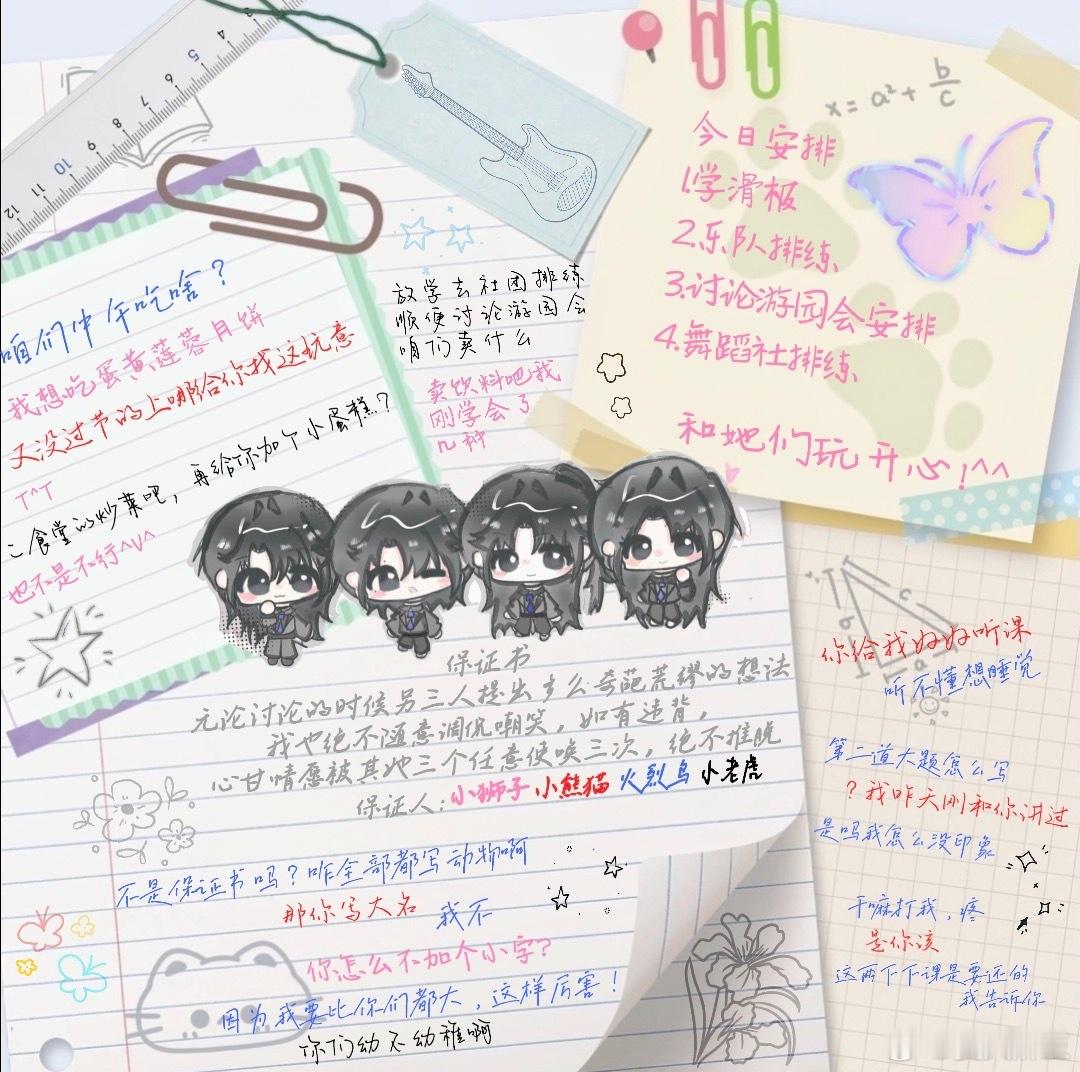 5 6 7 8 9 10 11 12
x = a² + b/c
今日安排
1.学滑板
2.乐队排练
3.讨论游园会安排
4.舞蹈社排练
和她们玩开心!^^
咱们中午吃啥?
我想吃蛋黄莲蓉月饼
又没过节的上哪给你找这玩意
T^T
二食堂的炒菜吧,再给你加个小蛋糕?
也不是不行^V^
放学去社团排练
顺便讨论游园会
咱们卖什么
卖饮料吧我
刚学会了
几种
保证书
无论讨论的时候另三人提出多么奇葩荒缪的想法
我也绝不随意调侃嘲笑,如有违背,
心甘情愿被其她三个任意使唤三次,绝不推脱
保证人:小狮子 小熊猫 火烈鸟 小老虎
不是保证书吗?咋全部都写动物啊
那你写大名
我不
你怎么不加个小字?
因为我要比你们都大,这样厉害!
你们幼不幼稚啊
c
b
a
你给我好好听课
听不懂想睡觉
第二道大题怎么写
?我昨天刚和你讲过
是吗我怎么没印象
干嘛打我,疼
是你该
这两下下课是要还的
我告诉你